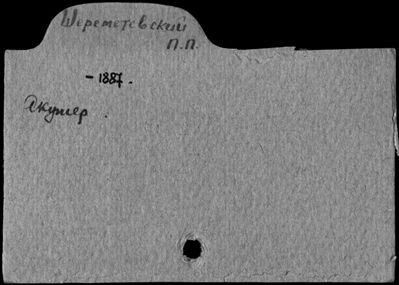 Шереметевский
П.П.
- 1887.
Акушер.